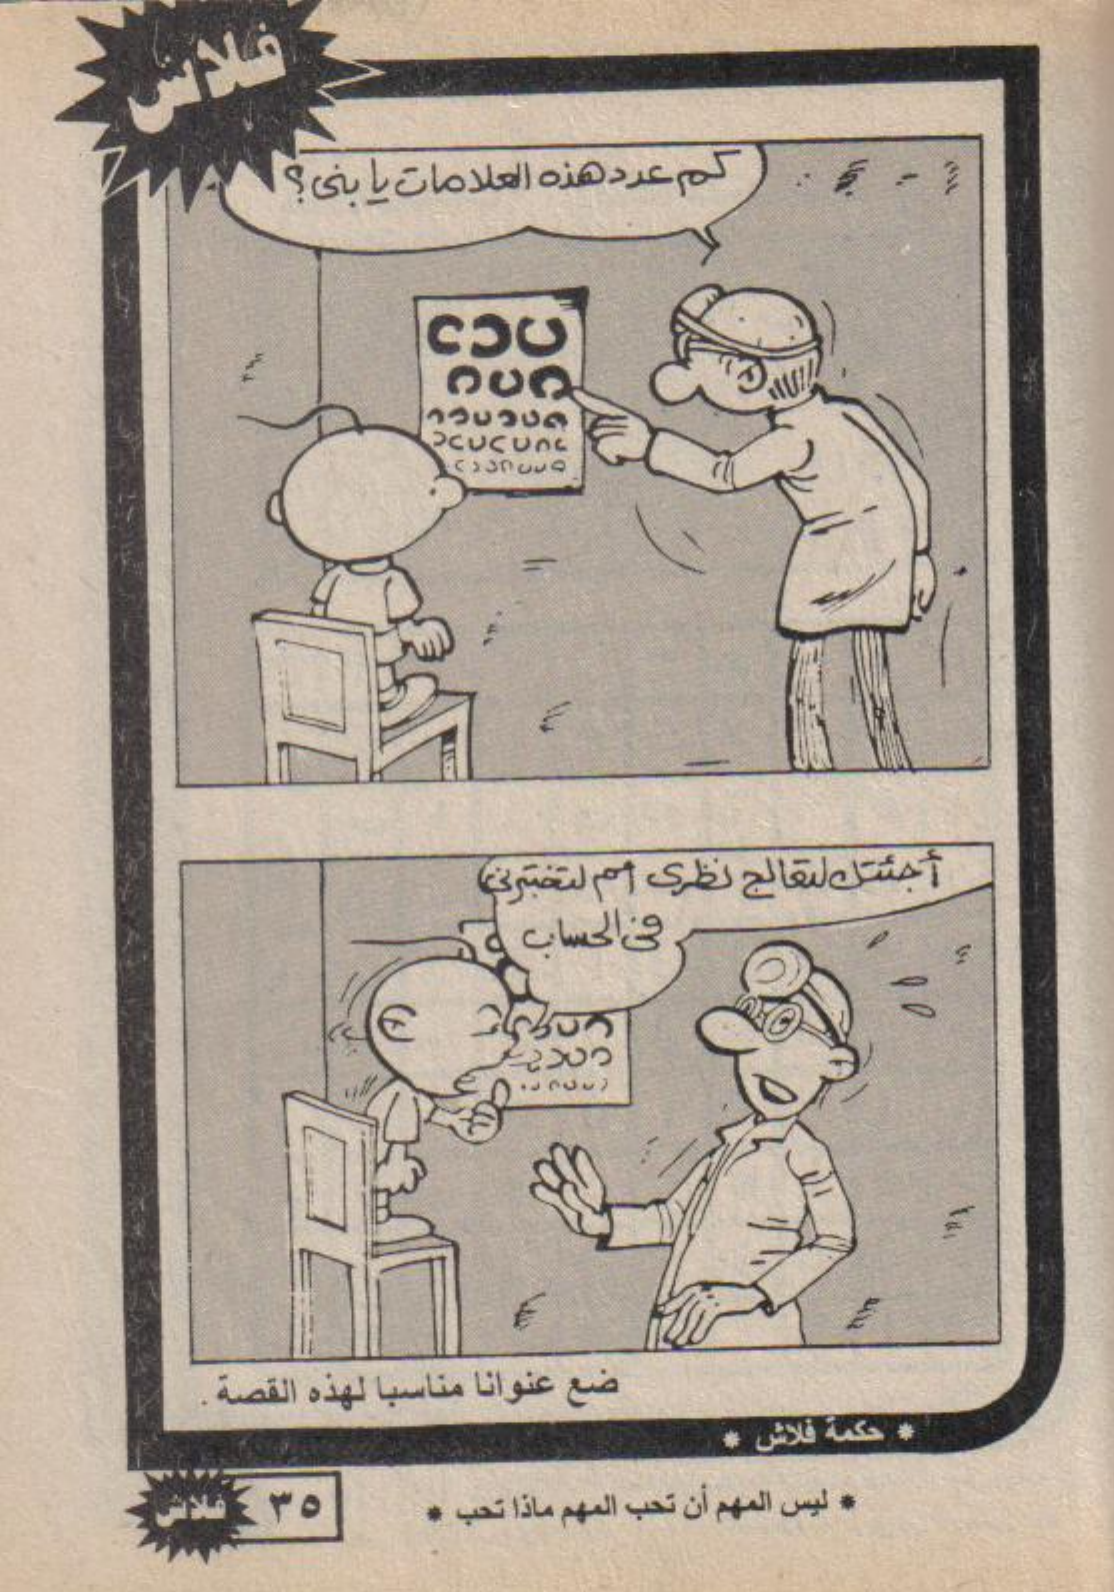 فلاش
كم عدد هذه العلامات يا بنى؟
أجئتك لتعالج نظرى أم لتختبرنى
فى الحساب
ضع عنوانا مناسبا لهذه القصة .
* حكمة فلاش *
* ليس المهم أن تحب المهم ماذا تحب *
٣٥ فلاش